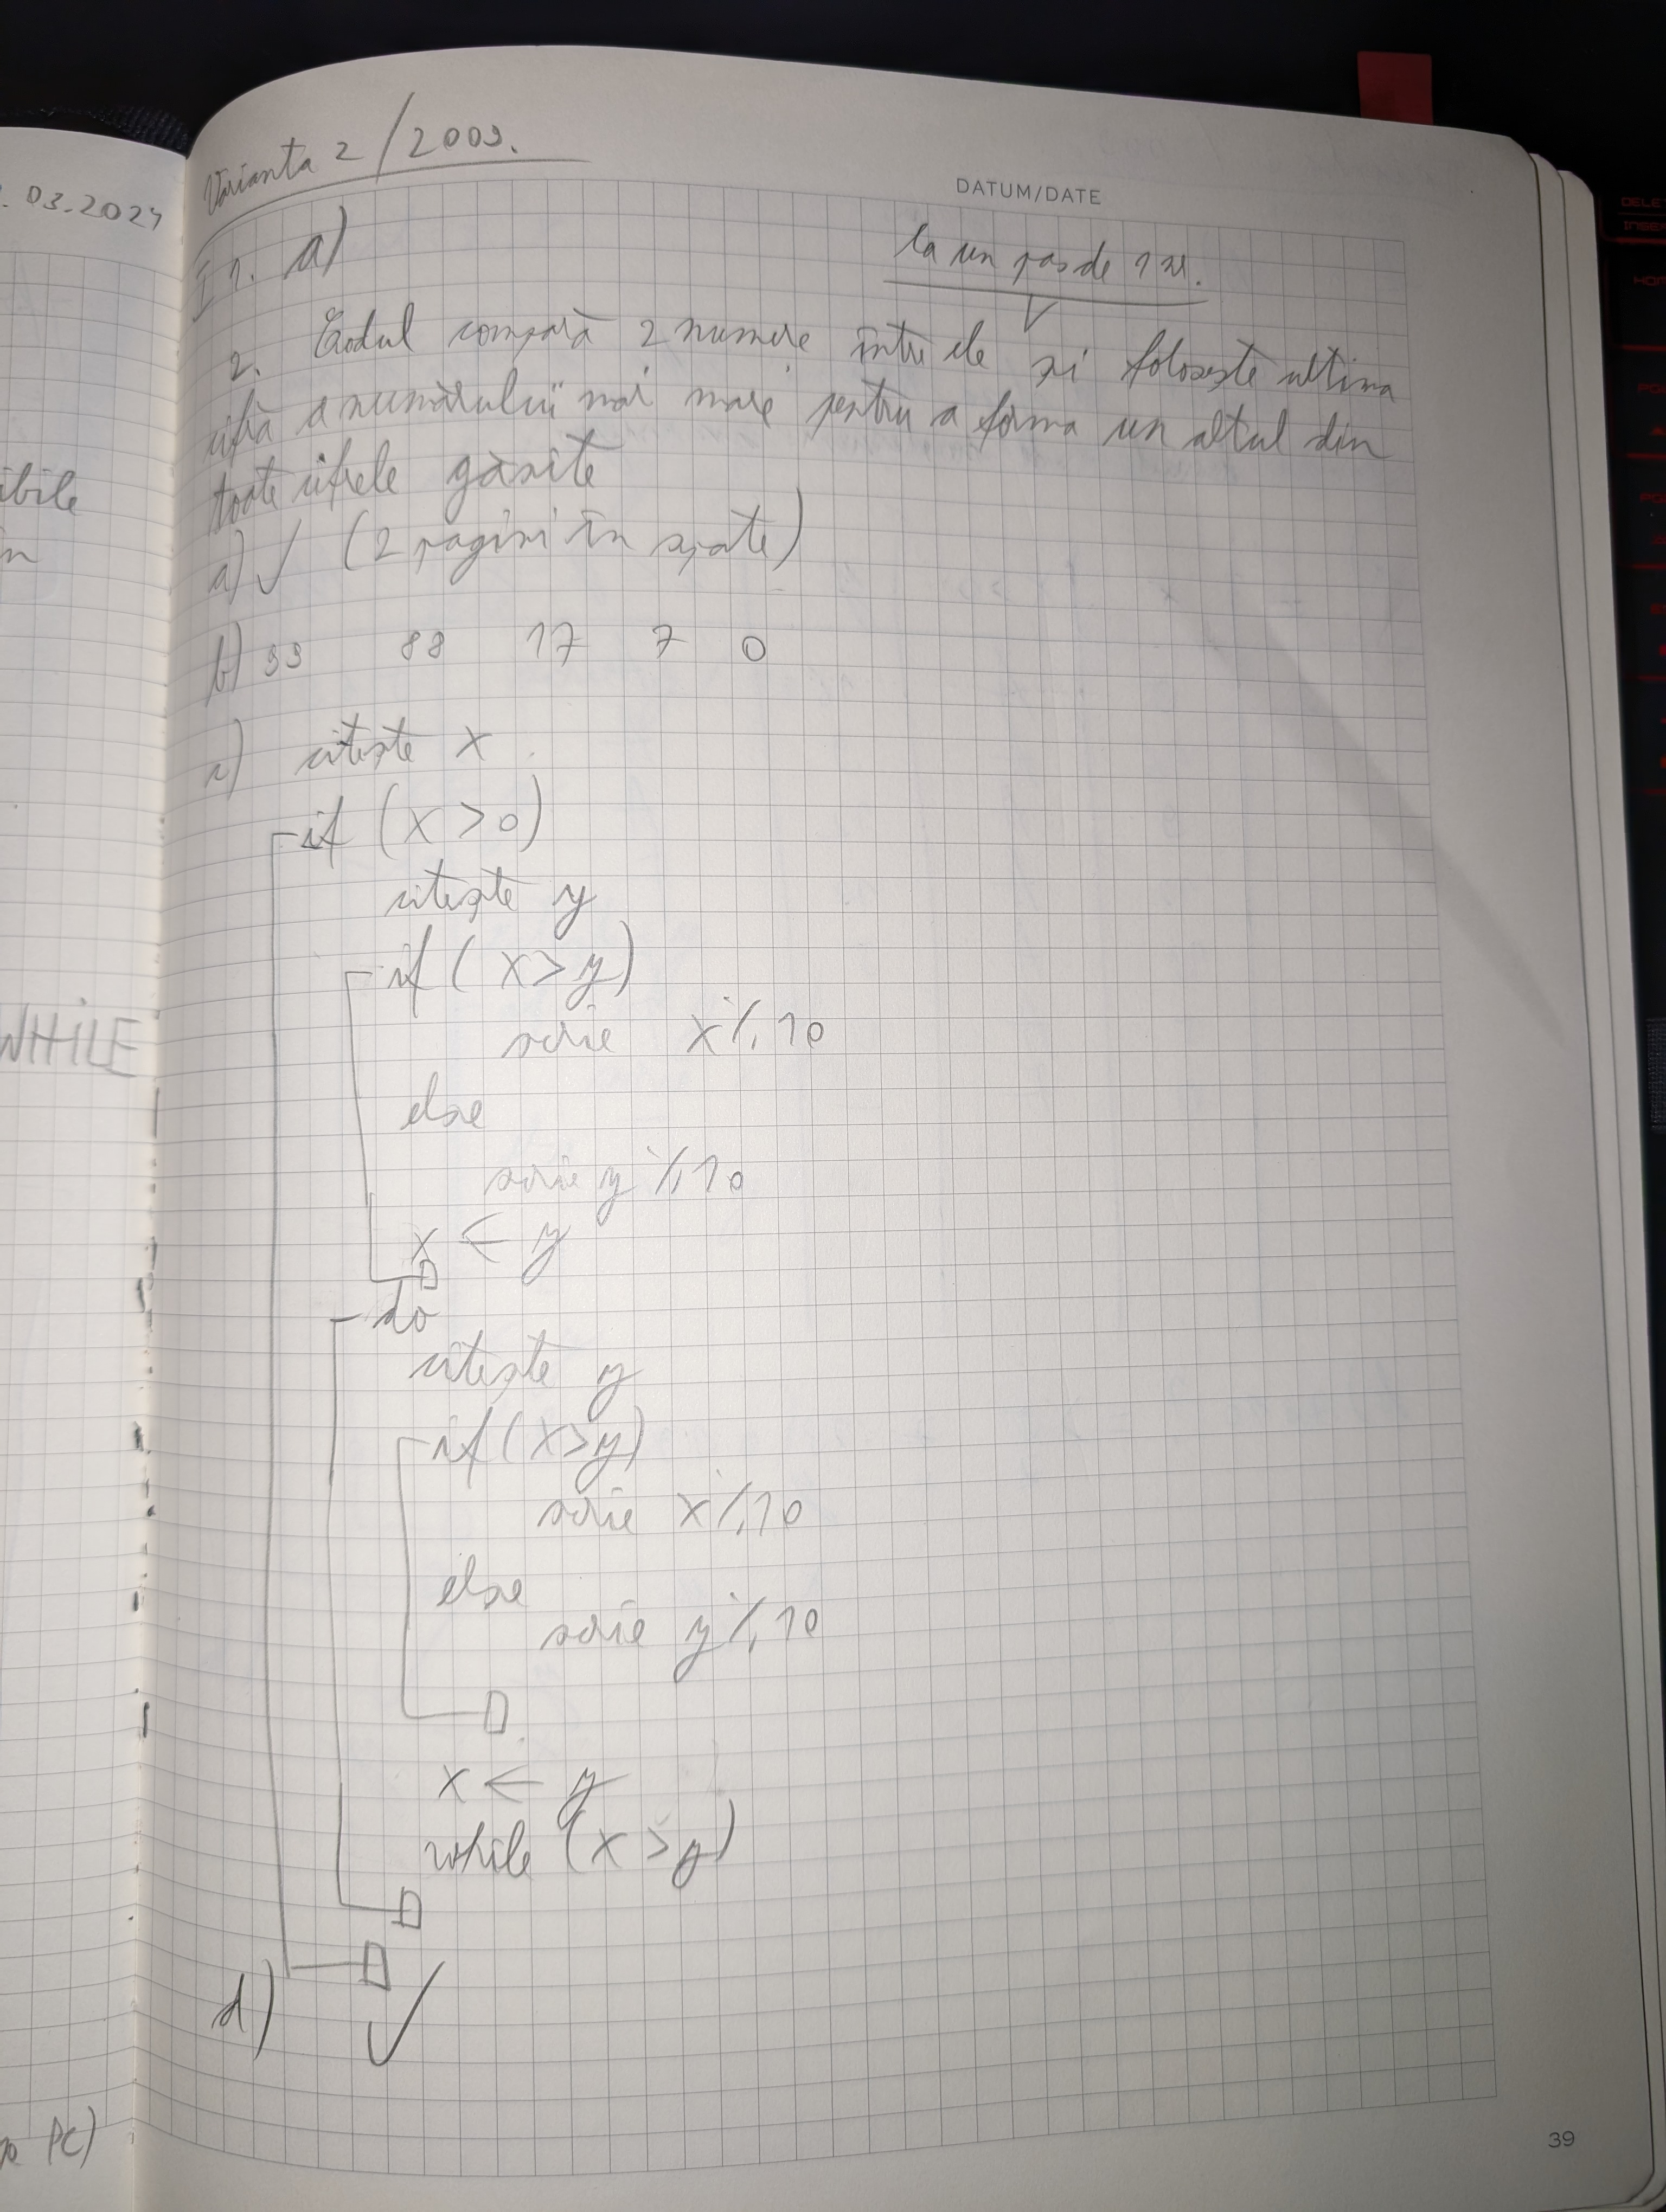 Varianta 2/2009.
03.2024
DATUM/DATE
I 1. a)
la un pas de 1 nr.
2. Codul compară 2 numere între ele și folosește ultima
cifră a numărului mai mare pentru a forma un altul din
toate cifrele găsite
a) ✓ (2 pagini în spate)
b) 99 88 17 7 0
c) citește x
if (x > 0)
citește y
if (x > y)
scrie x % 10
else
scrie y % 10
x ← y
do
citește y
if (x > y)
scrie x % 10
else
scrie y % 10
x ← y
while (x > y)
d) ✓
WHILE
PC)
39